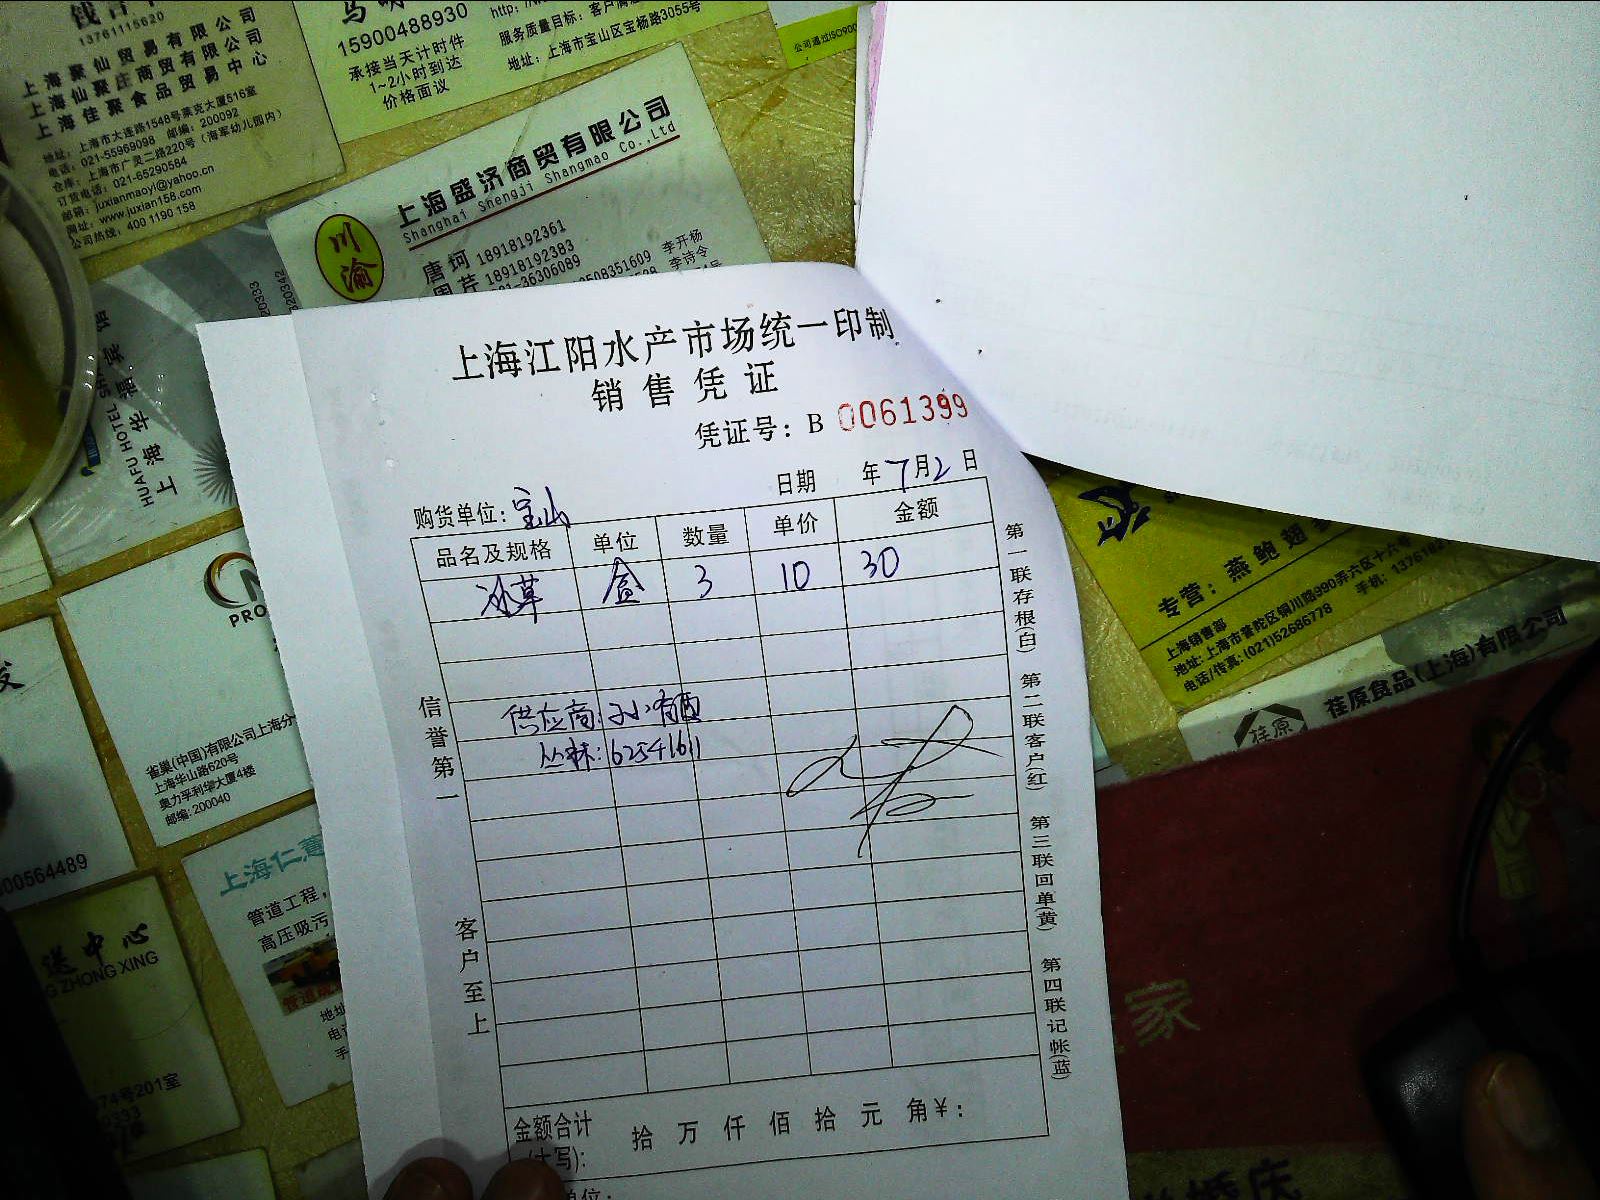 13761115620
上海聚仙贸易有限公司
上海仙聚庄商贸有限公司
上海佳聚食品贸易中心
地址：上海市大连路1548号莱克大厦516室
电话：021-55969098 邮编：200092
仓库：上海市广灵二路220号（海军幼儿园内）
订货电话：021-65290584
邮箱：juxianmaoyi@yahoo.cn
网址：www.juxian158.com
公司热线：400 1190 158
15900488930
承接当天计时件
1~2小时到达
价格面议
服务质量目标：客户满
地址：上海市宝山区宝杨路3055号
公司通过ISO900
川渝
上海盛济商贸有限公司
Shanghai Shengji Shangmao Co.,Ltd
唐坷 18918192361
周芹 18918192383
李开杨
李诗令
HUAFU HOTEL
上海华福宾馆
上海江阳水产市场统一印制
销售凭证
凭证号：B 0061399
日期 年7月2日
购货单位：宝山
品名及规格 单位 数量 单价 金额
冰草 盒 3 10 30
供应商：孙小有
丛林：62541611
信誉第一
客户至上
第一联存根(白)
第二联客户(红)
第三联回单(黄)
第四联记帐(蓝)
金额合计
(大写)：
拾 万 仟 佰 拾 元 角 ¥：
专营：燕鲍翅
上海销售部
地址：上海市普陀区铜川路990弄六区十六号
电话/传真：(021)52686778
荏原
荏原食品(上海)有限公司
雀巢(中国)有限公司上海分
上海华山路620号
奥力孚利华大厦4楼
邮编：200040
00564489
上海仁薏
管道工程，
高压吸污
送中心
ZHONG XING
74号201室
家
婚庆